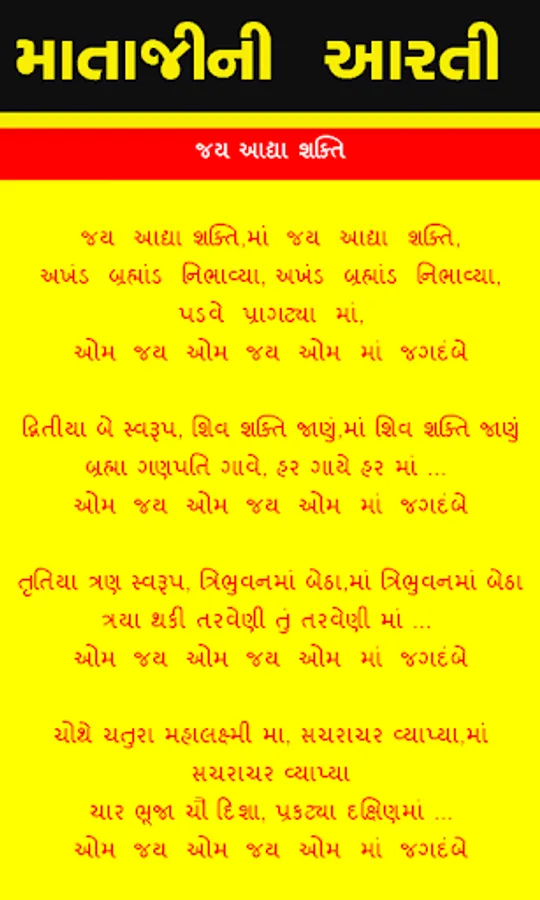 માતાજીની આરતી
જય આદ્યા શક્તિ
જય આદ્યા શક્તિ,માં જય આદ્યા શક્તિ,
અખંડ બ્રહ્માંડ નિભાવ્યા, અખંડ બ્રહ્માંડ નિભાવ્યા,
પડવે પ્રાગટ્યા માં,
ઓમ જય ઓમ જય ઓમ માં જગદંબે
દ્વિતીયા બે સ્વરૂપ, શિવ શક્તિ જાણું,માં શિવ શક્તિ જાણું
બ્રહ્મા ગણપતિ ગાવે, હર ગાયે હર માં ...
ઓમ જય ઓમ જય ઓમ માં જગદંબે
તૃતિયા ત્રણ સ્વરૂપ, ત્રિભુવનમાં બેઠા,માં ત્રિભુવનમાં બેઠા
ત્રયા થકી તરવેણી તું તરવેણી માં ...
ઓમ જય ઓમ જય ઓમ માં જગદંબે
ચોથે ચતુરા મહાલક્ષ્મી મા, સચરાચર વ્યાપ્યા,માં
સચરાચર વ્યાપ્યા
ચાર ભૂજા ચૌ દિશા, પ્રકટ્યા દક્ષિણમાં ...
ઓમ જય ઓમ જય ઓમ માં જગદંબે